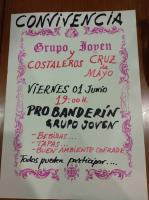 CONVIVENCIA
Grupo Joven
Y
COSTALEROS CRUZ
de
MAYO
VIERNES 01 JUNIO
19:00H.
PRO BANDERÍN
GRUPO JOVEN
- BEBIDAS...
- TAPAS...
- BUEN AMBIENTE COFRADE
Todos pueden participar...